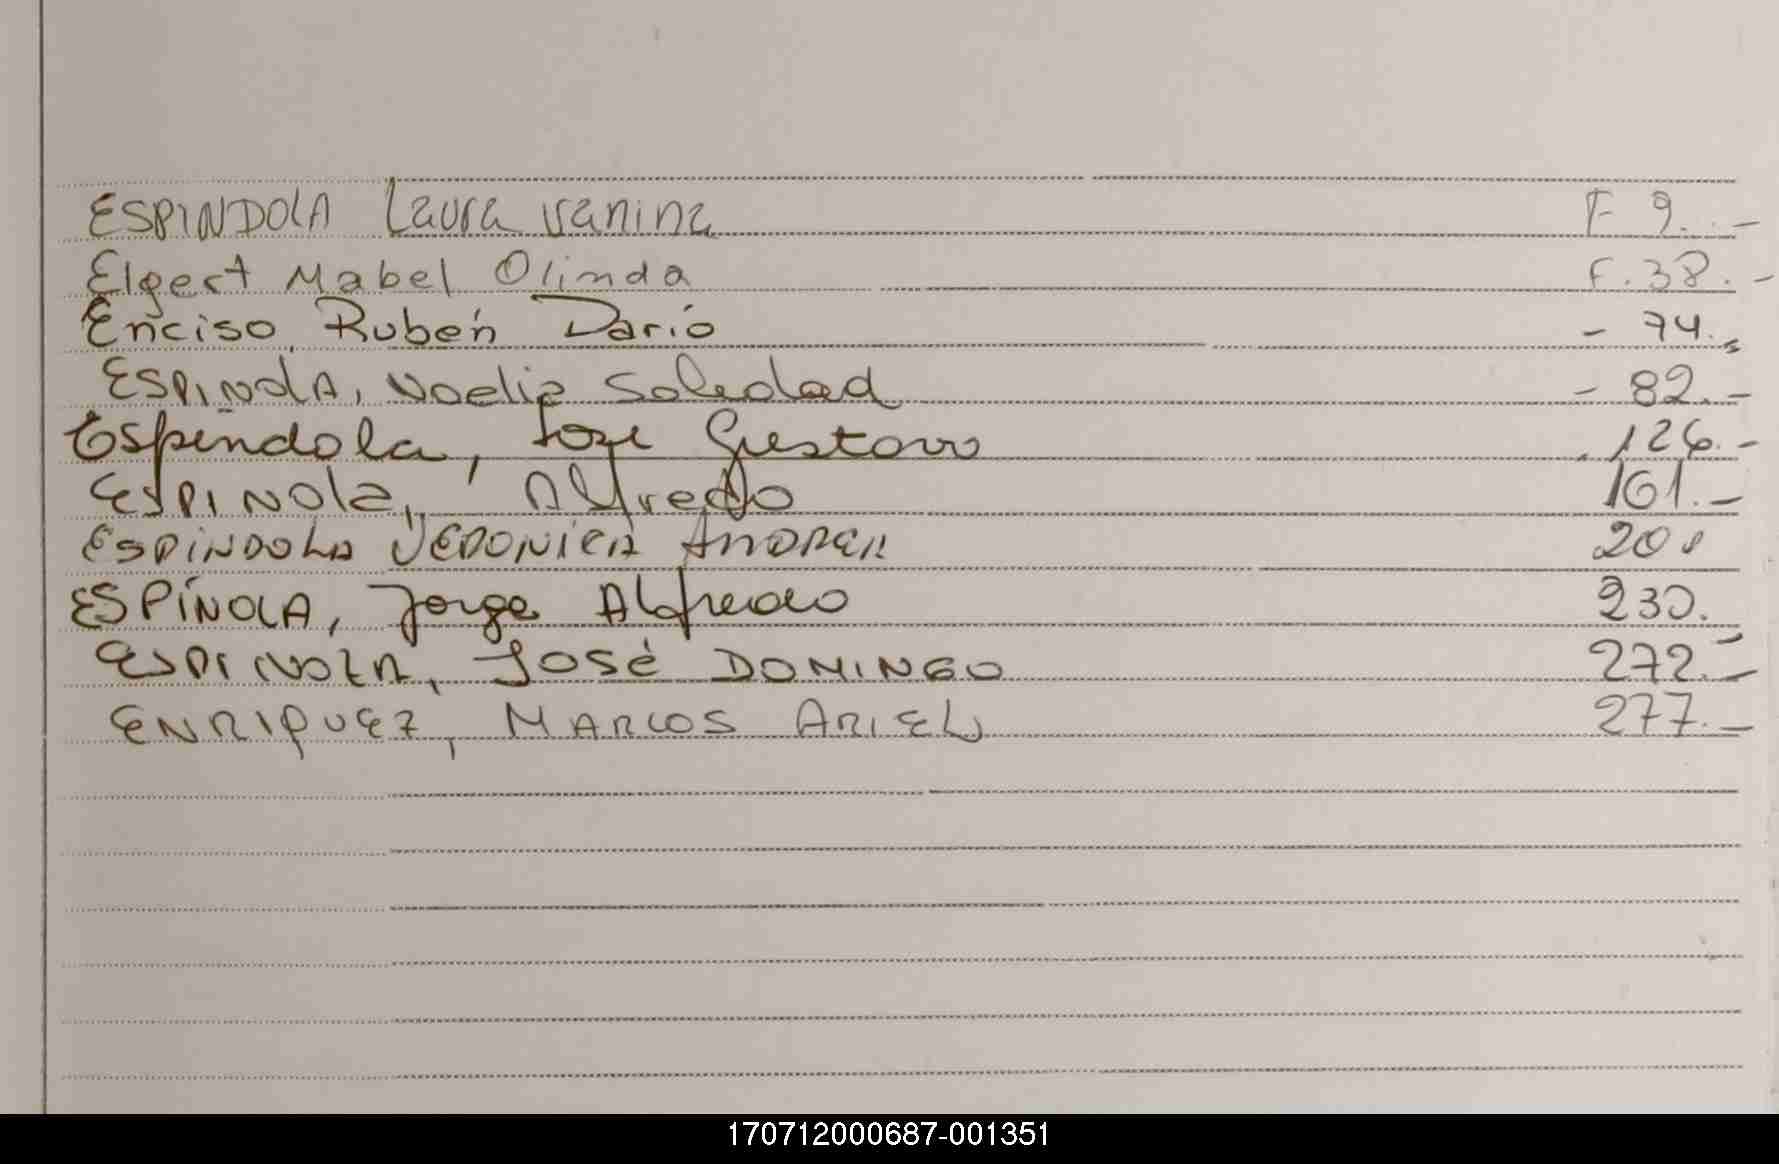 ESPINDOLA Laura vanina F 9.-
Elgert Mabel Olinda F. 38.-
Enciso, Rubén Darío - 74.-
ESPINOLA, Noelia Soledad - 82.-
Espindola, Jose Gustavo 126.-
ESPINOLA, Alfredo 161.-
ESPINDOLA VERONICA ANDREA 201
ESPÍNOLA, Jorge Alfredo 230.-
ESPINOZA, JOSÉ DOMINGO 272.-
ENRIQUEZ, MARCOS ARIEL 277.-
170712000687-001351